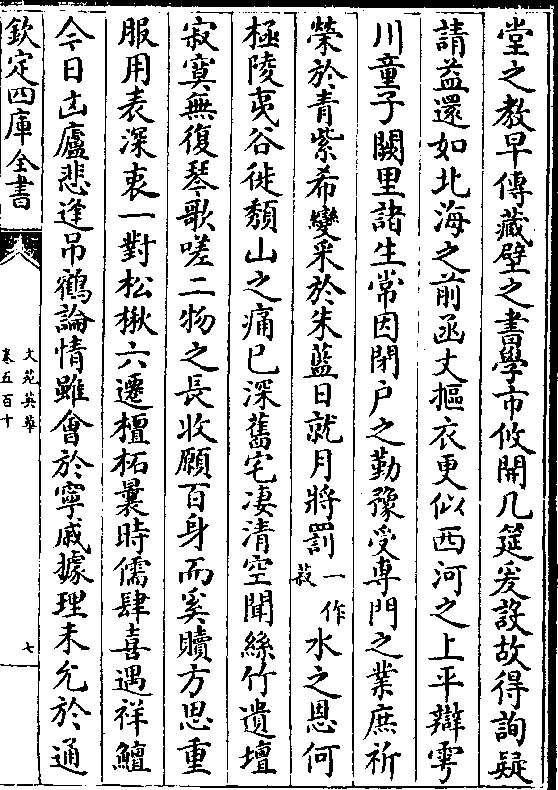 堂之教早傳藏壁之書學市攸開几筵爰設故得詢疑
請益還如北海之前函丈摳衣更似西河之上平辯雩
川童子闕里諸生常因閉户之勤豫受専門之業庶祈
榮於青紫希變采於朱藍日就月將罰一作菽水之恩何
極陵夷谷徙頽山之痛已深舊宅凄清空聞絲竹遺壇
寂寞無復琴歌嗟二物之長收願百身而奚贖方思重
服用表深衷一對松楸六遷檀柘曩時儒肆喜遇祥鱣
今日凷廬悲逢吊鶴論情雖㑹於寧戚據理未允於通
欽定四庫全書
文苑英華
卷五百十
七